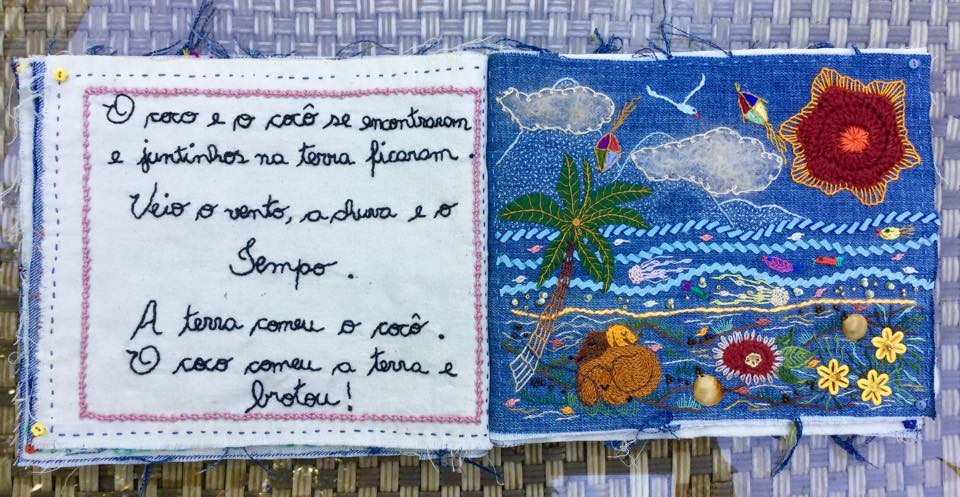 O coco e o cocô se encontraram
e juntinhos na terra ficaram.
Veio o vento, a chuva e o
Tempo.
A terra comeu o cocô.
O coco comeu a terra e
brotou!